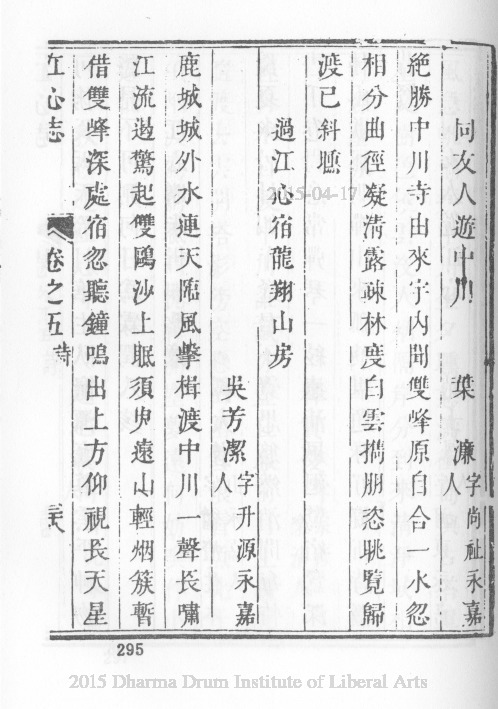 同友人遊中川 葉濂字尚祉永嘉人
絶勝中川寺由來宇内聞雙峰原自合一水忽
相分曲徑凝清露疎林度白雲攜朋恣眺覽歸
渡已斜曛
過江心宿龍翔山房
吳芳潔字升源永嘉人
鹿城城外水連天臨風擊楫渡中川一聲長嘯
江流遏驚起雙鷗沙上眠須臾遠山輕烟簇暫
借雙峰深處宿忽聽鐘鳴出上方仰視長天星
江心志 卷之五 詩
295
2015-04-17
2015 Dharma Drum Institute of Liberal Arts